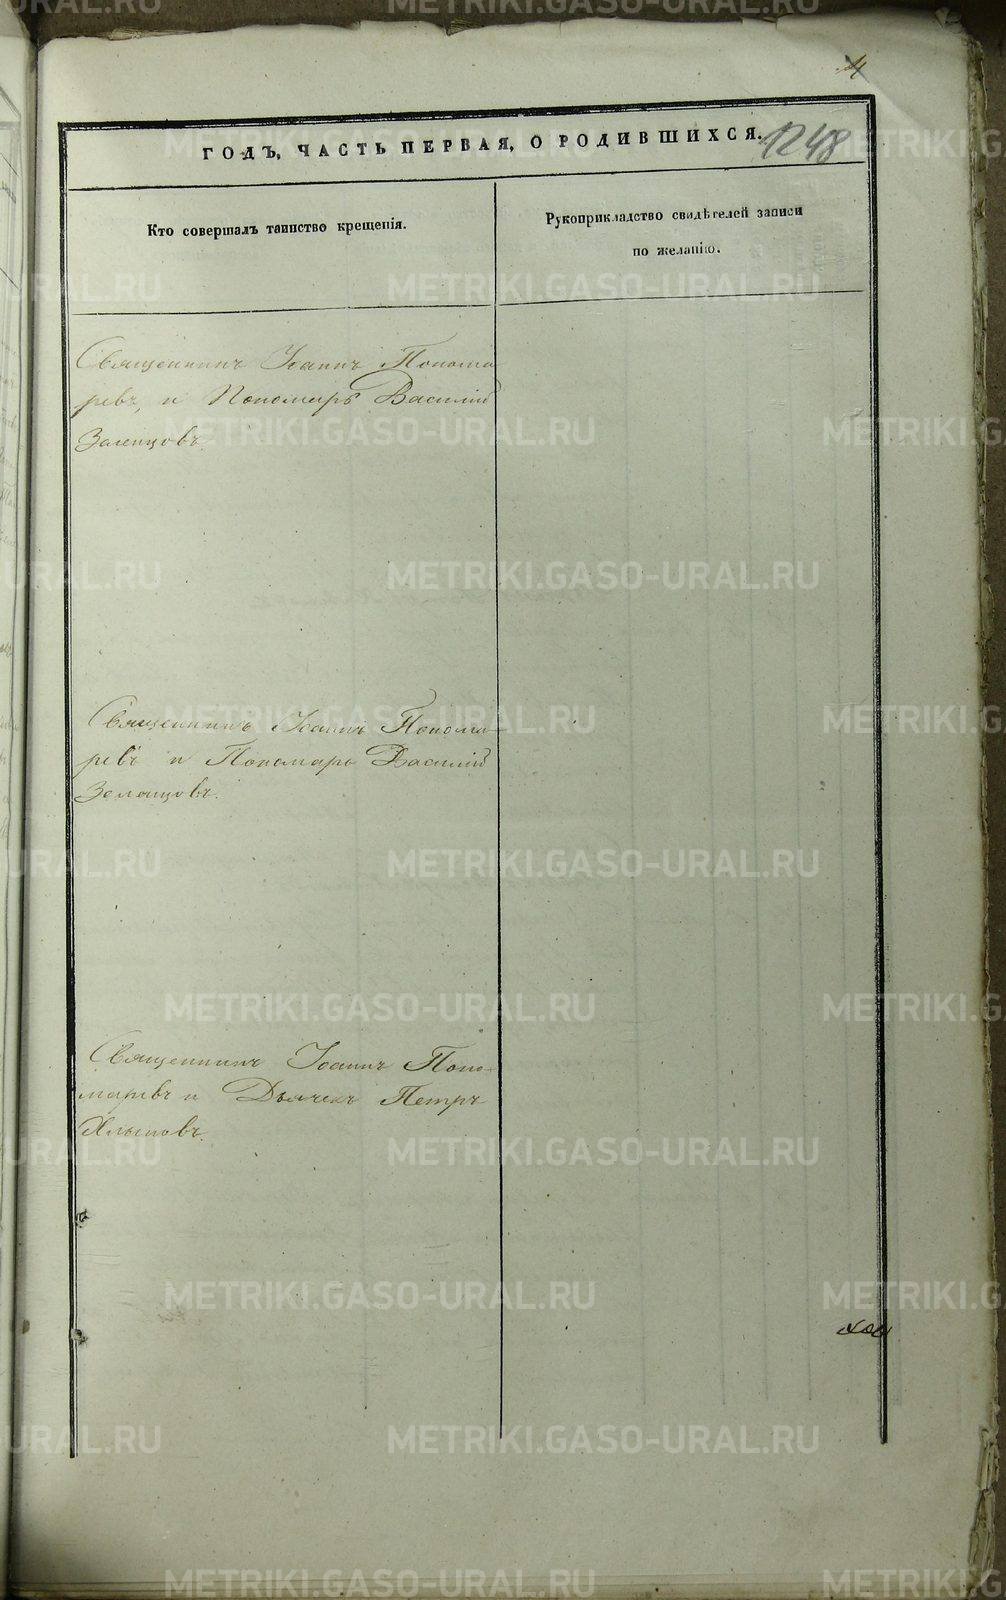 4
ГОДЪ, ЧАСТЬ ПЕРВАЯ, О РОДИВШИХСЯ.
1248
Кто совершалъ таинство крещенія.
Рукоприкладство свидѣтелей записи
по желанію.
Священникъ Іоаннъ Понома
ревъ, и Пономарь Василій
Священникъ Іоаннъ Понома-
ревъ и Пономарь Василій
Священникъ Іоаннъ Поно-
маревъ и Дьячекъ Петръ
METRIKI.GASO-URAL.RU